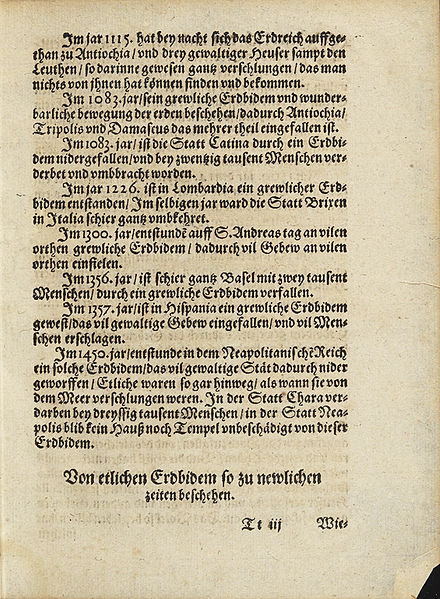 Im jar 1115. hat bey nacht sich das Erdreich auffge-
than zu Antiochia/ vnd drey gewaltiger Heuser sampt den
Leuthen/ so darinne gewesen gantz verschlungen/ das man
nichts von jhnen hat können finden vnd bekommen.
Im 1083. jar/ sein grewliche Erdbidem vnd wunder-
barliche bewegung der erden beschehen/ dadurch Antiochia/
Tripolis vnd Damascus das mehrer theil eingefallen ist.
Im 1083. jar/ ist die Statt Catina durch ein Erdbi-
dem nidergefallen/ vnd bey zwentzig tausent Menschen ver-
derbet vnd vmbbracht worden.
Im jar 1226. ist in Lombardia ein grewlicher Erd-
bidem entstanden/ Im selbigen jar ward die Statt Brixen
in Italia schier gantz vmbkehret.
Im 1300. jar/ entstundē auff S. Andreas tag an vilen
orthen grewliche Erdbidem/ dadurch vil Gebew an vilen
orthen einfielen.
Im 1356. jar/ ist schier gantz Basel mit zwey tausent
Menschen/ durch ein grewliche Erdbidem verfallen.
Im 1357. jar/ ist in Hispania ein grewliche Erdbidem
gewest/ das vil gewaltige Gebew eingefallen/ vnd vil Men-
schen erschlagen.
Im 1450. jar/ entstunde in dem Neapolitanischē Reich
ein solche Erdbidem/ das vil gewaltige Stät dadurch nider
geworffen/ Etliche waren so gar hinweg/ als wann sie von
dem Meer verschlungen weren. In der Statt Chara ver-
darben bey dreyssig tausent Menschen/ in der Statt Nea-
polis blib kein Hauß noch Tempel vnbeschädigt von dieser
Erdbidem.
Von etlichen Erdbidem so zu newlichen
zeiten beschehen.
Tt iij Wie-